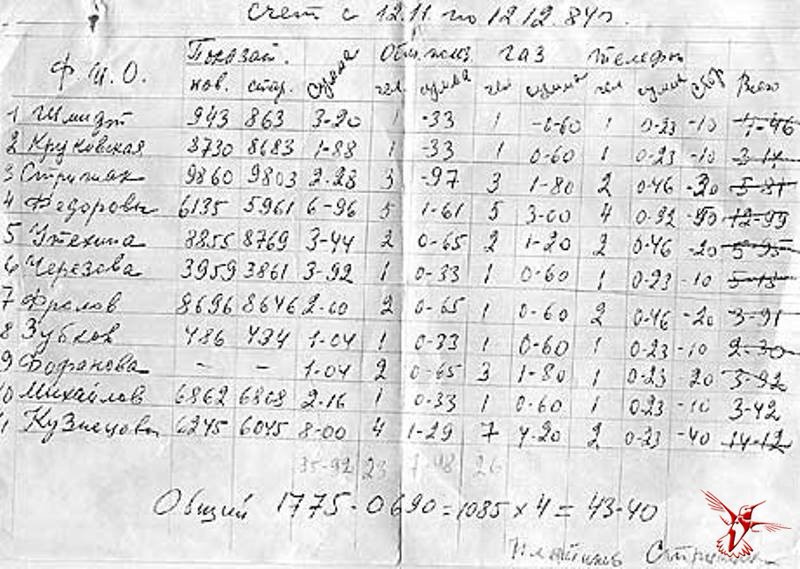 Счет с 12.11. по 12 12. 84г.
Ф. И. О. Показат. нов. стар. сумма Общ. польз. чел. сумма газ чел сумма телефон чел сумма сбор Всего
1 Шмидт 943 863 3-20 1 -33 1 -0-60 1 0-23 -10 1-46
2 Круковская 8730 8683 1-88 1 -33 1 0-60 1 0-23 -10 3-14
3 Стрижак 9860 9803 2-28 3 -97 3 1-80 2 0-46 -30 5-81
4 Федоровы 6135 5961 6-96 5 1-61 5 3-00 4 0-92 -50 12-99
5 Утехина 8855 8769 3-44 2 0-65 2 1-20 2 0-46 -20 5-95
6 Черезова 3959 3861 3-92 1 0-33 1 0-60 1 0-23 -10 5-18
7 Фролов 8696 8646 2-00 2 0-65 1 0-60 2 0-46 -20 3-91
8 Зубков 486 434 1-04 1 0-33 1 0-60 1 0-23 -10 2-30
9 - - 1-04 2 0-65 3 1-80 1 0-23 -20 3-92
10 Михайлов 6862 6808 2-16 1 0-33 1 0-60 1 0-23 -10 3-42
11 Кузнецовы 6245 6045 8-00 4 1-29 7 4-20 2 0-23 -40 14-12
35-92 23 7-48 26
Общий 1775 - 0690 = 1085 х 4 = 43-40